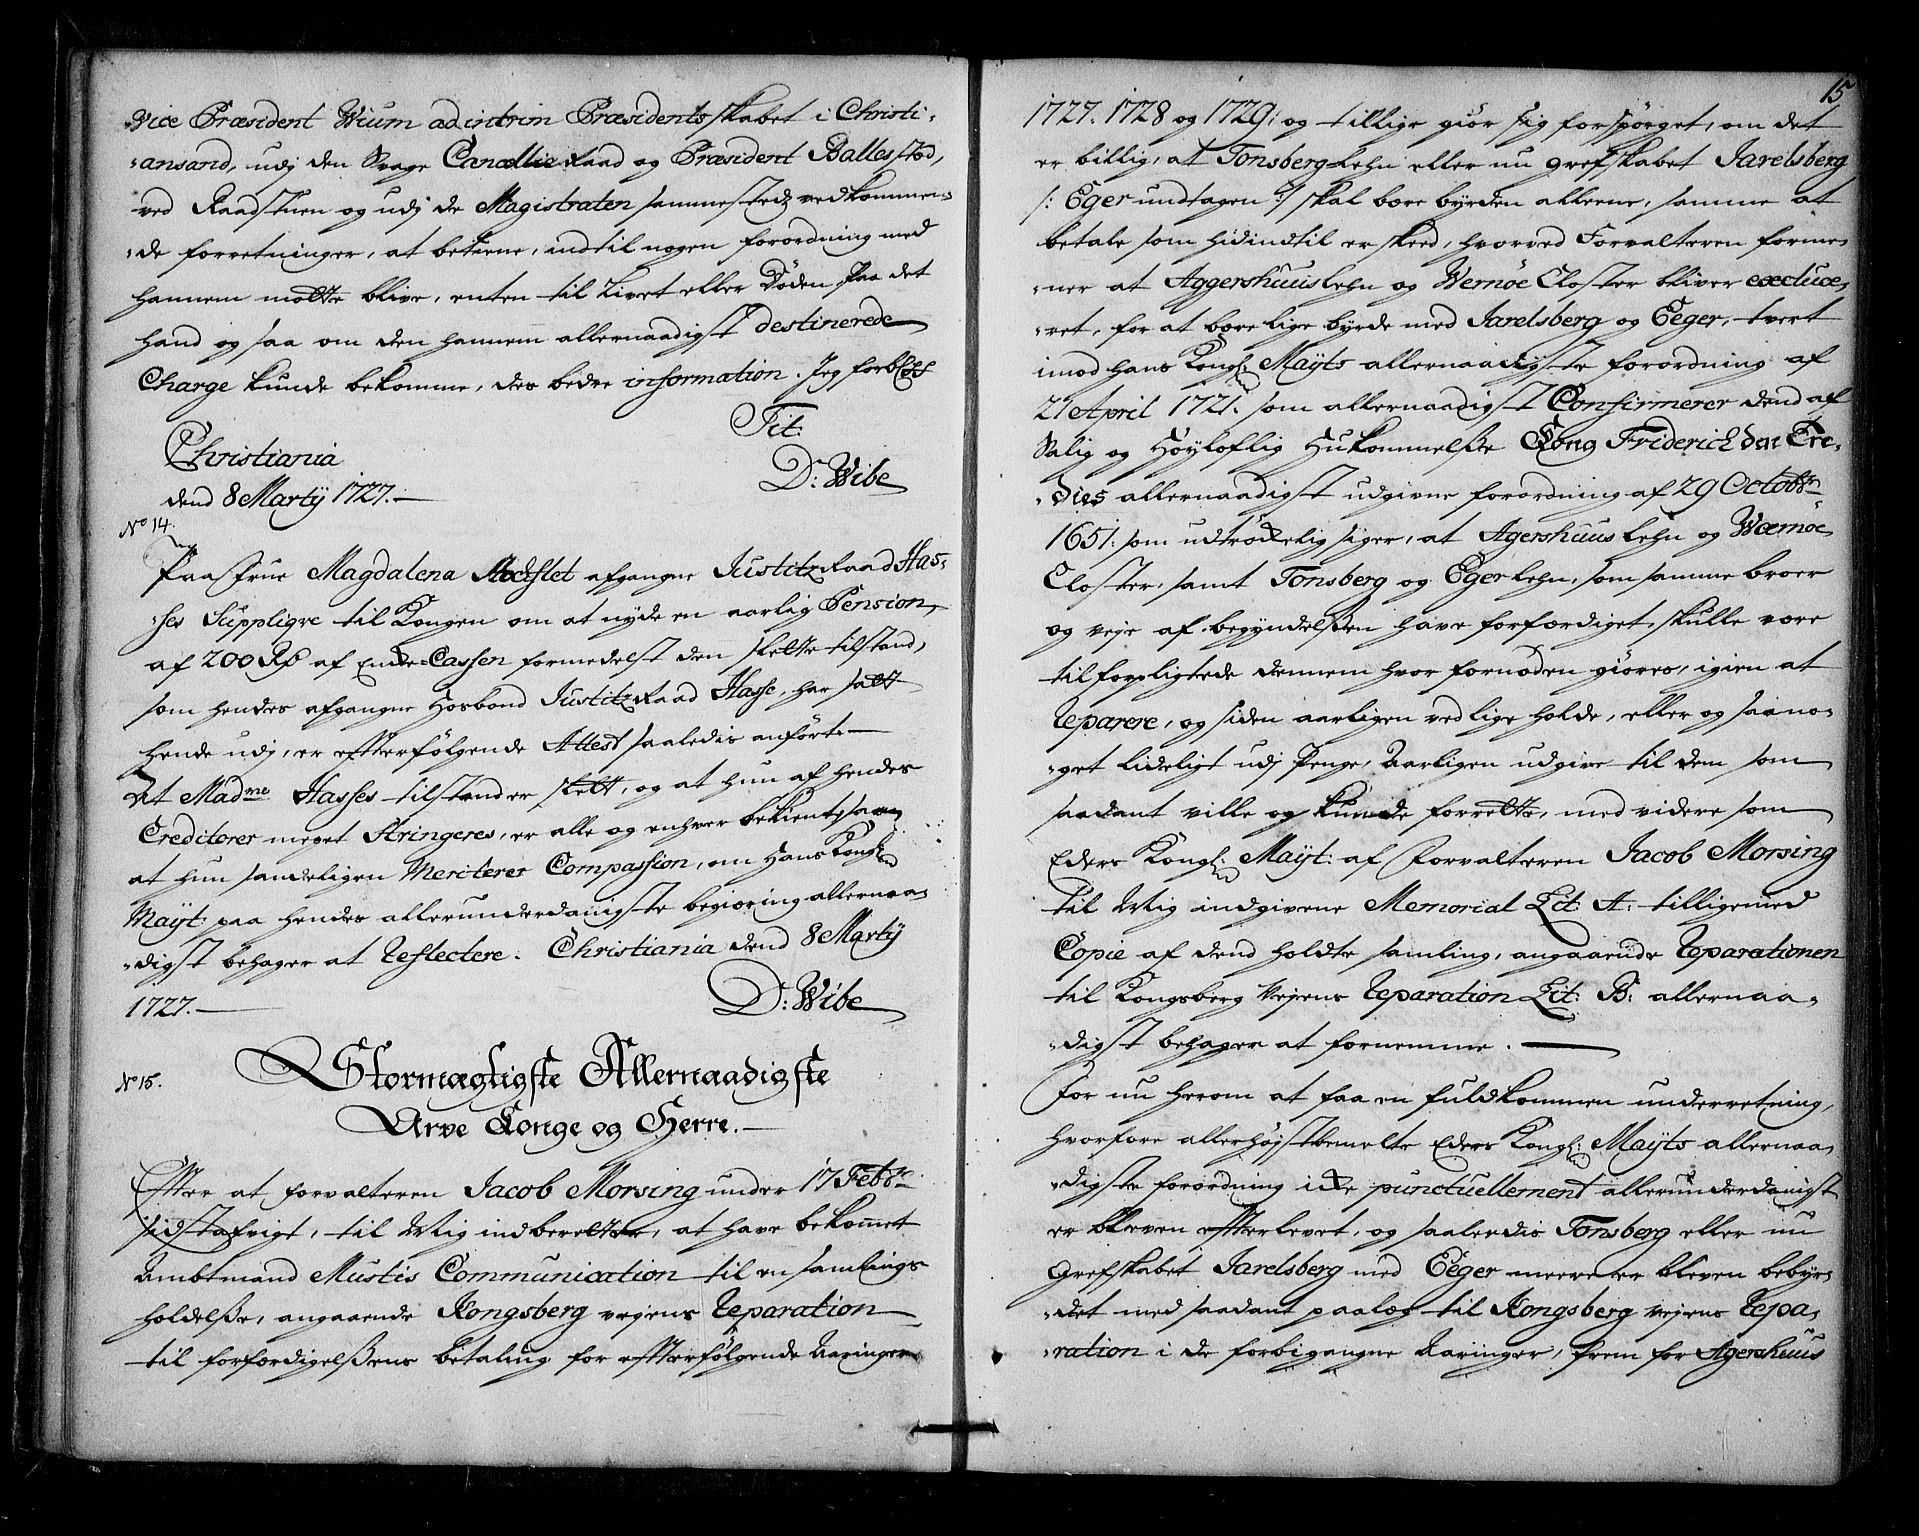 Vice Præsident Wium ad intrim Præsidentsskabet i Christi-
-ansand, udj den Svage Cancellie Raad og Præsident Ballestød,
ved Raadstuen og udj de Magistraten sammestedz vedkommen-
-de forretninger, at betiene, indtil nogen forordning med
hannem motte blive, enten til Livet eller Døden Paa det
hand og saa om den hannem allernaadigst destinerede
Charge kunde bekomme, des bedre information. Jeg forbl:
Tit:
Christiania
dend 8 Martij 1727.
D: Wibe
No 14.
Paa Frue Magdalena afgangne Justitz Raad Has-
-ses Suppliqve til Kongen om at nyde en aarlig Pension,
af 200 Rd af Enke-Cassen formedelst den slette tilstand,
som hendes afgangne Hosbond Justitz Raad Hasse, har satt
hende udj, er efterfølgende Attest saaledis anførte
At Madme Hasses tilstander slett, og at hun af hendes
Creditorer meget Stringeres, er alle og enhver bekient, saa
at hun sandeligen Meriterer Compassion, om Hans Kongl:
Mayt: paa hendes allerunderdanigste begiæring allernaa-
-digst behager at Reflectere. Christiania dend 8 Martij
1727.
D: Wibe
No 15.
Stormægtigste Allernaadigste
Arve Konge og Herre.
Efter at forvalteren Jacob Morsing under 17 Febr:
sidstafvigt, til Mig indberetter, at have bekommet
Ambtmand Mustis Communication til en samlings
holdelße, angaaende Kongsberg vejens Reparation
til forfærdigelßens betaling for efterfølgende Aaringer
15
1727. 1728 og 1729; og tillige giør sig forspørget, om det
er billig, at Tonsberg Lehn eller nu grefskabet Jarelsberg
/: Eger undtagen :/ skal bære byrden alleene, samme at
betale som hidindtil er skeed, hvorved Forvalteren forme-
-ner at Aggershuus Lehn og Wernøe Closter bliver exclude-
-ret, for at bære lige byrde med Jarelsberg og Eeger, tvert
imod hans Kongl: Mayts allernaadigste forordning af
21 April 1721. som allernaadigst Confirmerer dend af
Salig og Høyloflig Hukommelße Kong Friderich den Tre-
-dies allernaadigst udgivne forordning af 29 Octobr:
1651: som udtrøckelig siger, at Agershuus Lehn og Wærnøe
Closter, samt Tonsberg og Eger Lehn, som samme broer
og veje af begyndelßen have forfærdiget, skulle være
tilforpligtede dennem hvor fornøden giøres, igien at
Reparere, og siden aarligen ved lige holde, eller og saa no-
-get lideligt udj Penge, Aarligen udgive til dem som
saadant ville og kunde forrette, med videre som
Eders Kongl: Mayt: af Forvalteren Jacob Morsing
til Mig indgivene Memorial Lit: A: tilligemed
Copie af dend holdte samling, angaaende Reparationen
til Kongsberg Vejens Reparation Lit: B: allernaa-
-digst behager at fornemme.
For nu herom at faa en fuldkommen underretning,
hvorfore allerhøjstbemelte Eders Kongl: Mayts allernaa-
-digste forordning icke punctuellement allerunderdanigst
er bleven efterlevet, og saaledis Tonsberg eller nu
Grefskabet Jarelsberg med Eeger meere er bleven bebyr-
-det med saadant paalæg til Kongsberg Vejens Repa-
-ration i de forbigangne Aaringer, frem for Agershuus